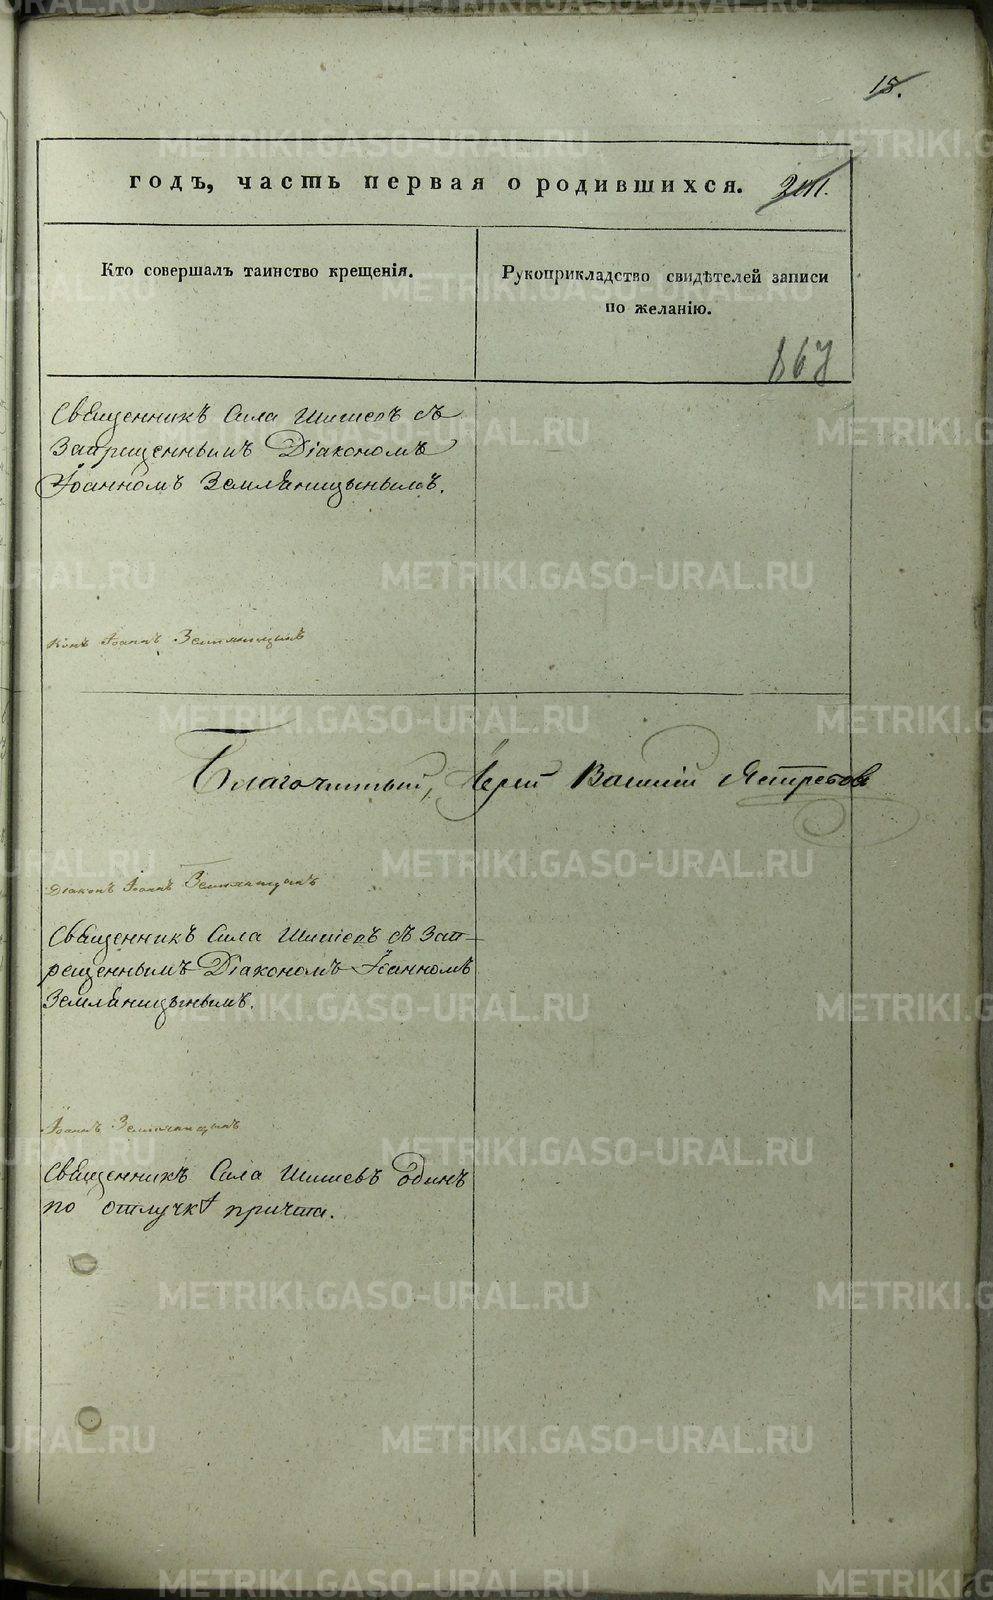 18.
годъ, часть первая о родившихся.
Кто совершалъ таинство крещенія.
Рукоприкладство свидѣтелей записи
по желанію.
167
Священникъ Сила Шишевъ съ
Запрещеннымъ Діакономъ
Іоанномъ Земляницынымъ.
конъ Іоаннъ Земляницынъ
Благочинный, Іерей Василій Ястребовъ
Діаконъ Іоаннъ Земляницынъ
Священникъ Сила Шишевъ съ Зап-
рещеннымъ Діакономъ Іоанномъ
Земляницынымъ.
Іоаннъ Земляницынъ
Священникъ Сила Шишевъ одинъ
по отлучкѣ причта.
METRIKI.GASO-URAL.RU